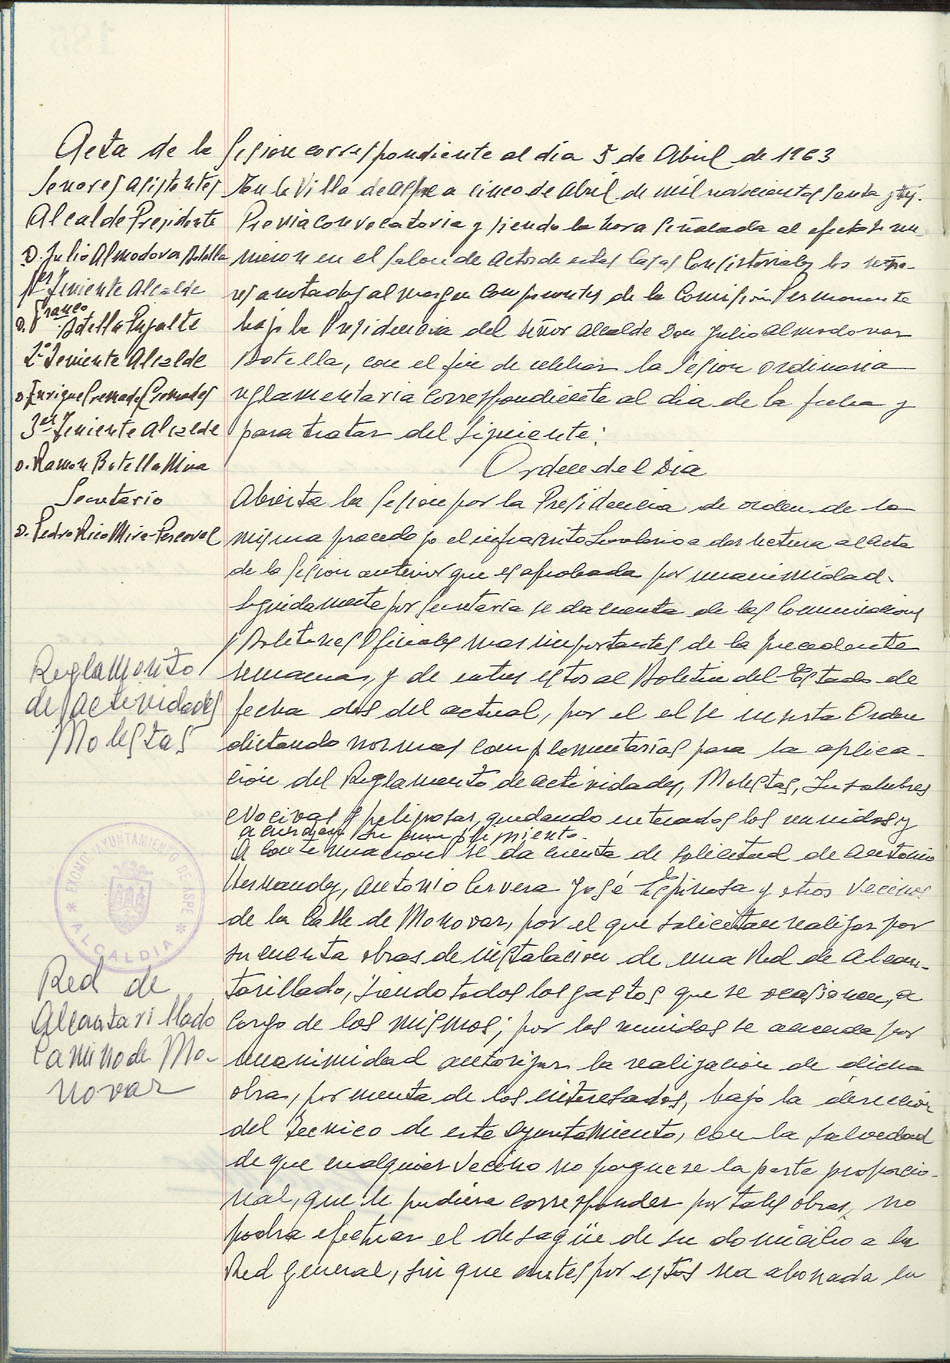 Acta de la Sesion correspondiente al dia 5 de Abril de 1963
Señores asistentes
Alcalde Presidente
D. Julio Almodovar Botella
1er Teniente Alcalde
D. Franco
Botella Pujalte
2º Teniente Alcalde
D. Enrique Cremades Cremades
3er Teniente Alcalde
D. Ramon Botella Mira
Secretario
D. Pedro Rico Mira-Perceval
En la Villa de Aspe a cinco de Abril de mil novecientos senta y tres.
Previa convocatoria y siendo la hora señalada al efecto se reu-
nieron en el salon de Actos de estas Casas Consistoriales los seño-
res anotados al margen componentes de la Comisión Permanente
bajo la Presidencia del señor Alcalde Don Julio Almodovar
Botella, con el fin de celebrar la Sesion ordinaria
reglamentaria correspondiente al dia de la fecha y
para tratar del siguiente:
Orden del Dia
Abierta la Sesion por la Presidencia de orden de la
misma procedo yo el infrascrito Secretario a dar lectura al acta
de la Sesion anterior que es aprobada por unanimidad.
Seguidamente por Secretaria se da cuenta de las Comunicaciones
y Boletines Oficiales mas importantes de la precedente
semana, y de entre estos al Boletin del Estado de
fecha dos del actual, por el el se inserta Orden
dictando normas complementarias para la aplica-
ción del Reglamento de actividades, Molestas, Insalubres
Nocivas y peligrosas, quedando enterados los reunidos y
acuerdan su cumplimiento.
Reglamento
de actividades
Molestas
A continuacion se da cuenta de solicitud de Antonio
Hernandez, Antonio Cervera José Espinosa y otros Vecinos
de la Calle de Monovar, por el que solicitan realizar por
su cuenta obras de instalacion de una Red de Alcan-
tarillado, siendo todos los gastos que se ocasionen, a
cargo de los mismos; por los reunidos se acuerda por
unanimidad autorizar la realizacion de dicha
obra, por cuenta de los interesados, bajo la dirección
del Tecnico de este Ayuntamiento, con la salvedad
de que cualquier Vecino no pague se la parte proporcio-
nal, que le pudiera corresponder por tales obras, no
podra efectuar el desagüe de su domicilio a la
Red general, sin que antes por estos sea abonada la
EXCMO. AYUNTAMIENTO DE ASPE
* ALCALDIA *
Red de
Alcantarillado
Camino de Mo-
novar